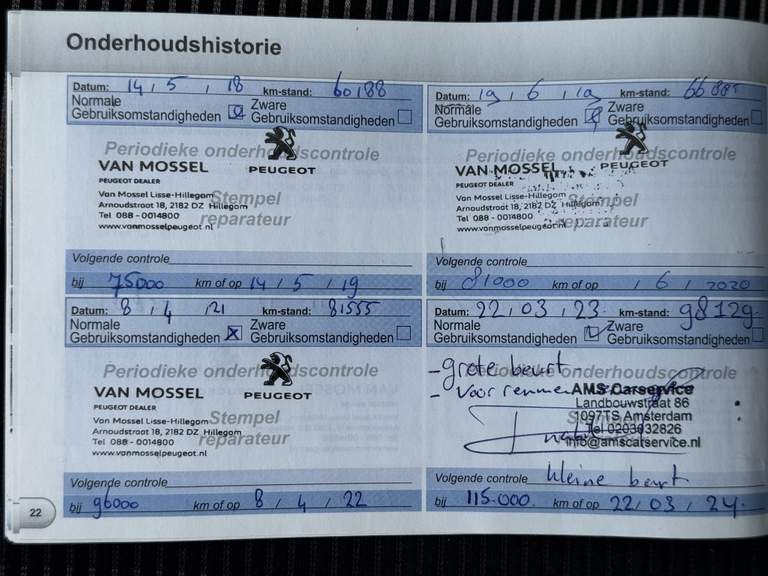 Onderhoudshistorie
Datum: 14 / 5 / 18 km-stand: 60188
Normale Gebruiksomstandigheden Zware Gebruiksomstandigheden
Periodieke onderhoudscontrole
VAN MOSSEL
PEUGEOT DEALER
PEUGEOT
Van Mossel Lisse-Hillegom
Arnoudstraat 18, 2182 DZ Hillegom
Tel 088 - 0014800
www.vanmosselpeugeot.nl
Stempel
reparateur
Volgende controle
bij 75000 km of op 14 / 5 / 19
Datum: 19 / 6 / 19 km-stand:
Normale Gebruiksomstandigheden Zware Gebruiksomstandigheden
Periodieke onderhoudscontrole
VAN MOSSEL
PEUGEOT DEALER
PEUGEOT
Van Mossel Lisse-Hillegom
Arnoudstraat 18, 2182 DZ Hillegom
Tel 088 - 0014800
www.vanmosselpeugeot.nl
Stempel
reparateur
Volgende controle
bij 81000 km of op / 6 / 2020
Datum: 8 / 4 / 21 km-stand: 81555
Normale Gebruiksomstandigheden Zware Gebruiksomstandigheden
Periodieke onderhoudscontrole
VAN MOSSEL
PEUGEOT DEALER
PEUGEOT
Van Mossel Lisse-Hillegom
Arnoudstraat 18, 2182 DZ Hillegom
Tel 088 - 0014800
www.vanmosselpeugeot.nl
Stempel
reparateur
Volgende controle
bij 96000 km of op 8 / 4 / 22
Datum: 22 / 03 / 23 km-stand: 98129
Normale Gebruiksomstandigheden Zware Gebruiksomstandigheden
- grote beurt -
- Voor remmen
AMS Carservice
Landbouwstraat 86
1097TS Amsterdam
Tel 0203832826
info@amscarservice.nl
Volgende controle kleine beurt
bij 115.000 km of op 22 / 03 / 24
22